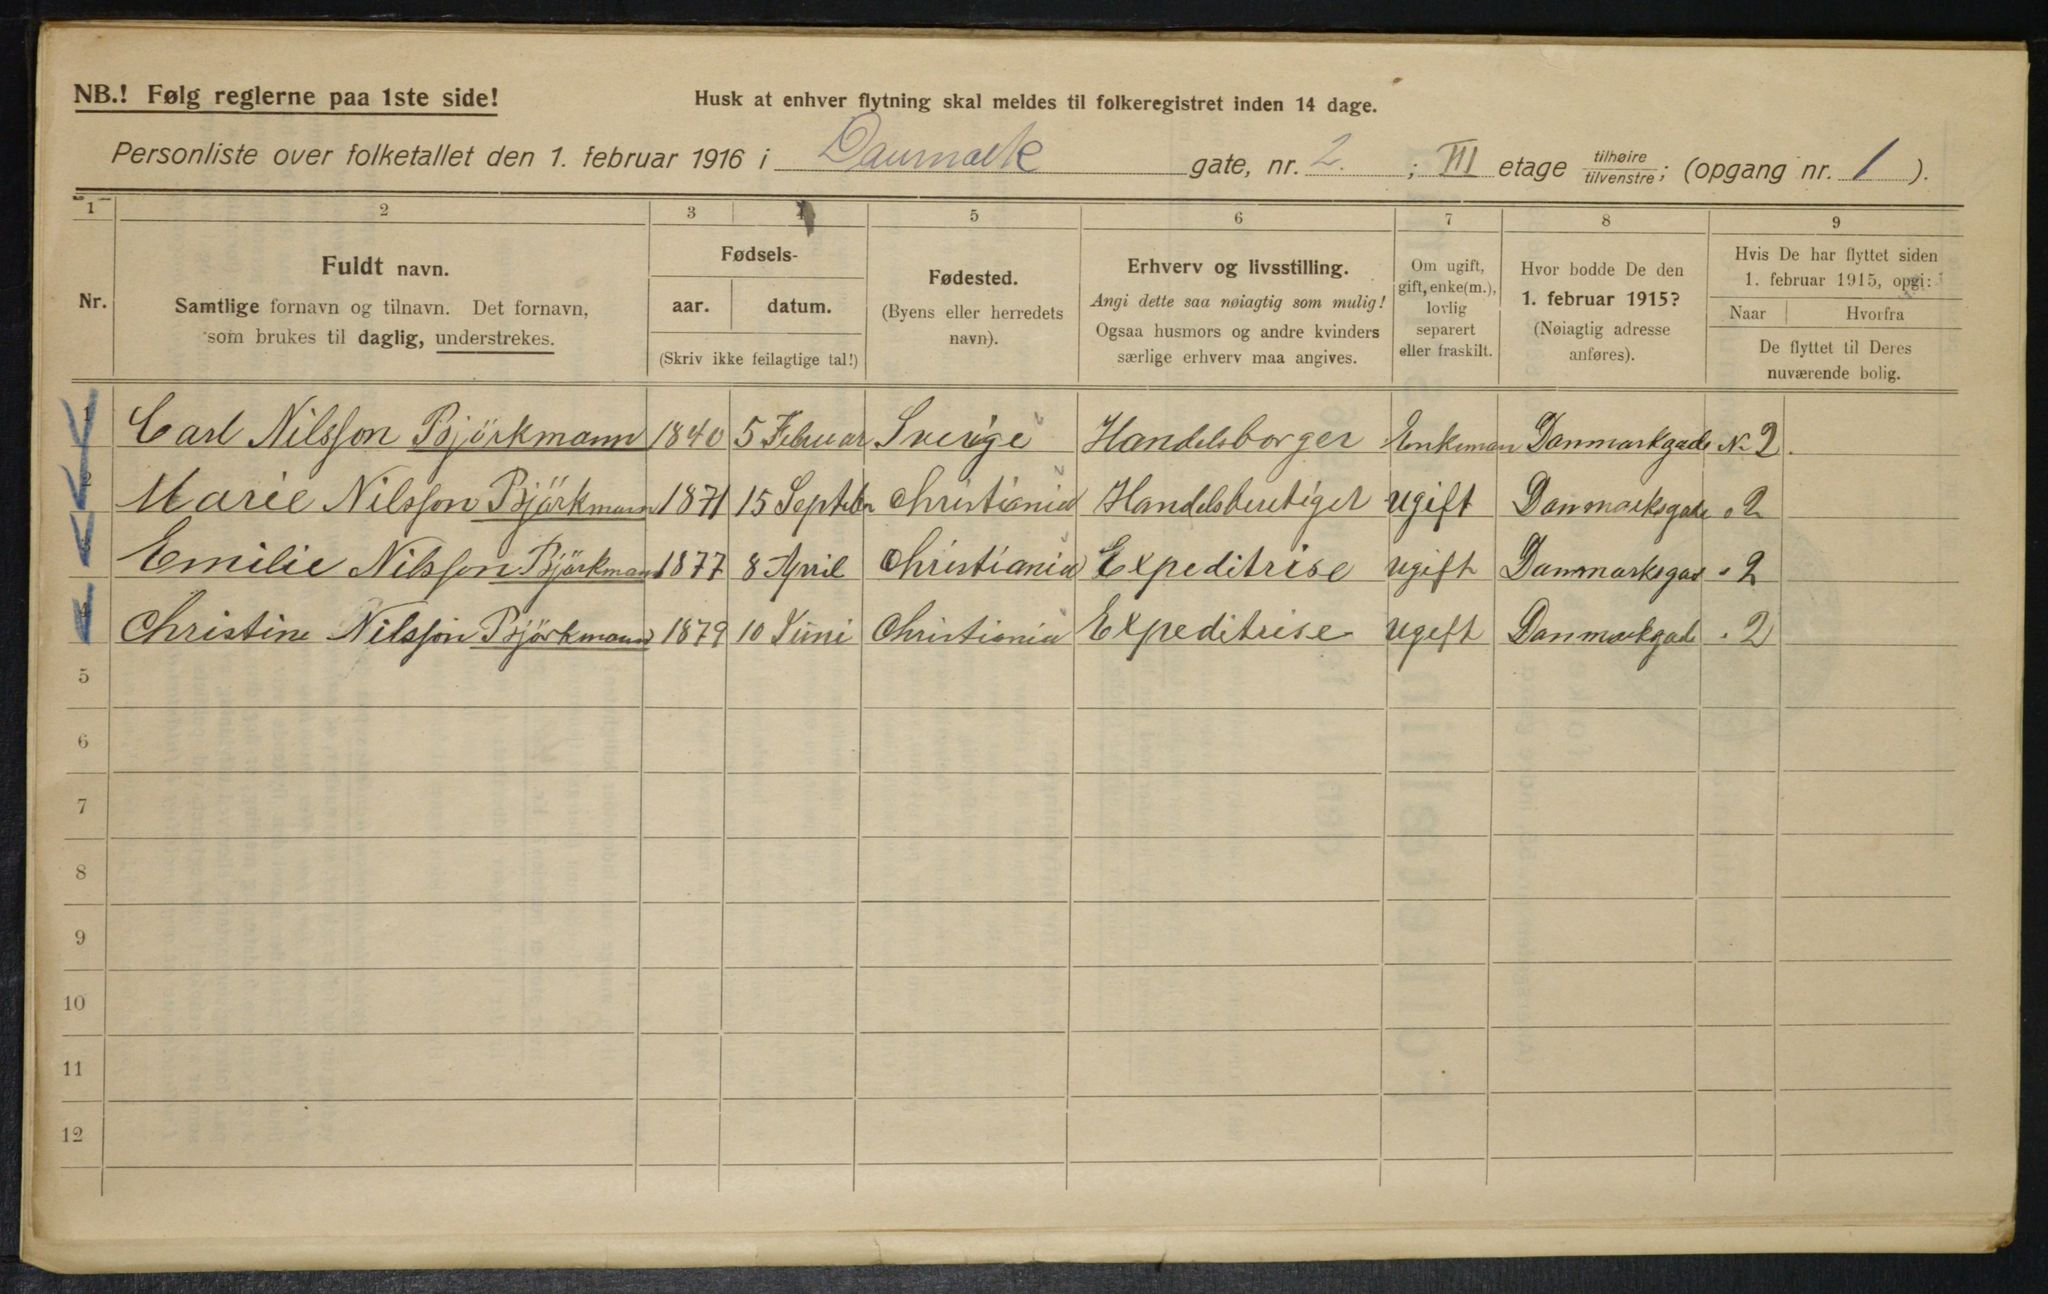 NB.! Følg reglerne paa 1ste side!
Husk at enhver flytning skal meldes til folkeregistret inden 14 dage.
Personliste over folketallet den 1. februar 1916 i Danmark gate, nr. 2. ; III etage tilhøire/tilvenstre; (opgang nr. 1 ).
1 2 3 4 5 6 7 8 9
Nr.
Fuldt navn.
Samtlige fornavn og tilnavn. Det fornavn,
som brukes til daglig, understrekes.
Fødsels-
aar. datum.
(Skriv ikke feilagtige tal!)
Fødested.
(Byens eller herredets
navn).
Erhverv og livsstilling.
Angi dette saa nøiagtig som mulig!
Ogsaa husmors og andre kvinders
særlige erhverv maa angives.
Om ugift,
gift, enke(m.),
lovlig
separert
eller fraskilt.
Hvor bodde De den
1. februar 1915?
(Nøiagtig adresse
anføres).
Hvis De har flyttet siden
1. februar 1915, opgi:
Naar Hvorfra
De flyttet til Deres
nuværende bolig.
1 Carl Nilsson Björkmann 1840 5 Februar Sverige Handelsborger Enkeman Danmarkgade N 2.
2 Marie Nilsson Björkmann 1871 15 Septebr Christiania Handelsberetiget ugift Danmarksgade " 2
3 Emilie Nilsson Björkmann 1877 8 April Christiania Expeditrise ugift Danmarksgad " 2
4 Christine Nilsson Björkmann 1879 10 Juni Christiania Expeditrise ugift Danmarkgade " 2
5
6
7
8
9
10
11
12